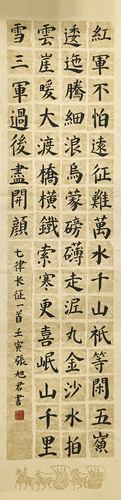 紅軍不怕遠征難萬水千山祇等閑五嶺
逶迤騰細浪烏蒙磅礴走泥丸金沙水拍
雲崖暖大渡橋橫鐵索寒更喜岷山千里
雪三軍過後盡開顏
七律长征一首壬寅張旭君書